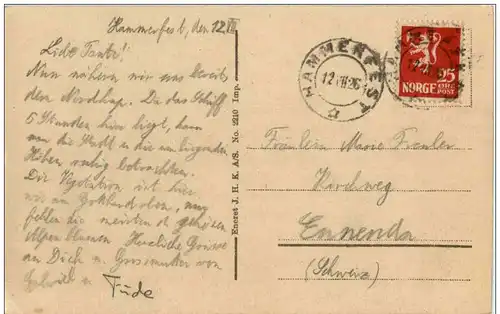 Hammerfest, den 12/VII
Liebe Tante!
Nun nähern wir uns bereits
dem Nordkap. Da das Schiff
5 Stunden hier liegt, kann
man die Stadt u. die umliegenden
Höhen ruhig betrachten.
Die Vegetation ist hier
wie am nur
fehlen die meisten schönen
Alpenblumen. Herzliche Grüsse
an Dich u. Grossmutter von
u. Trude
Eneret J. H. K. A/S. No. 2210 Imp.
HAMMERFEST
12 VII 26
25
NORGE
ØRE
POST
Fräulein Marie
Kirchweg
Ennenda
(Schweiz)